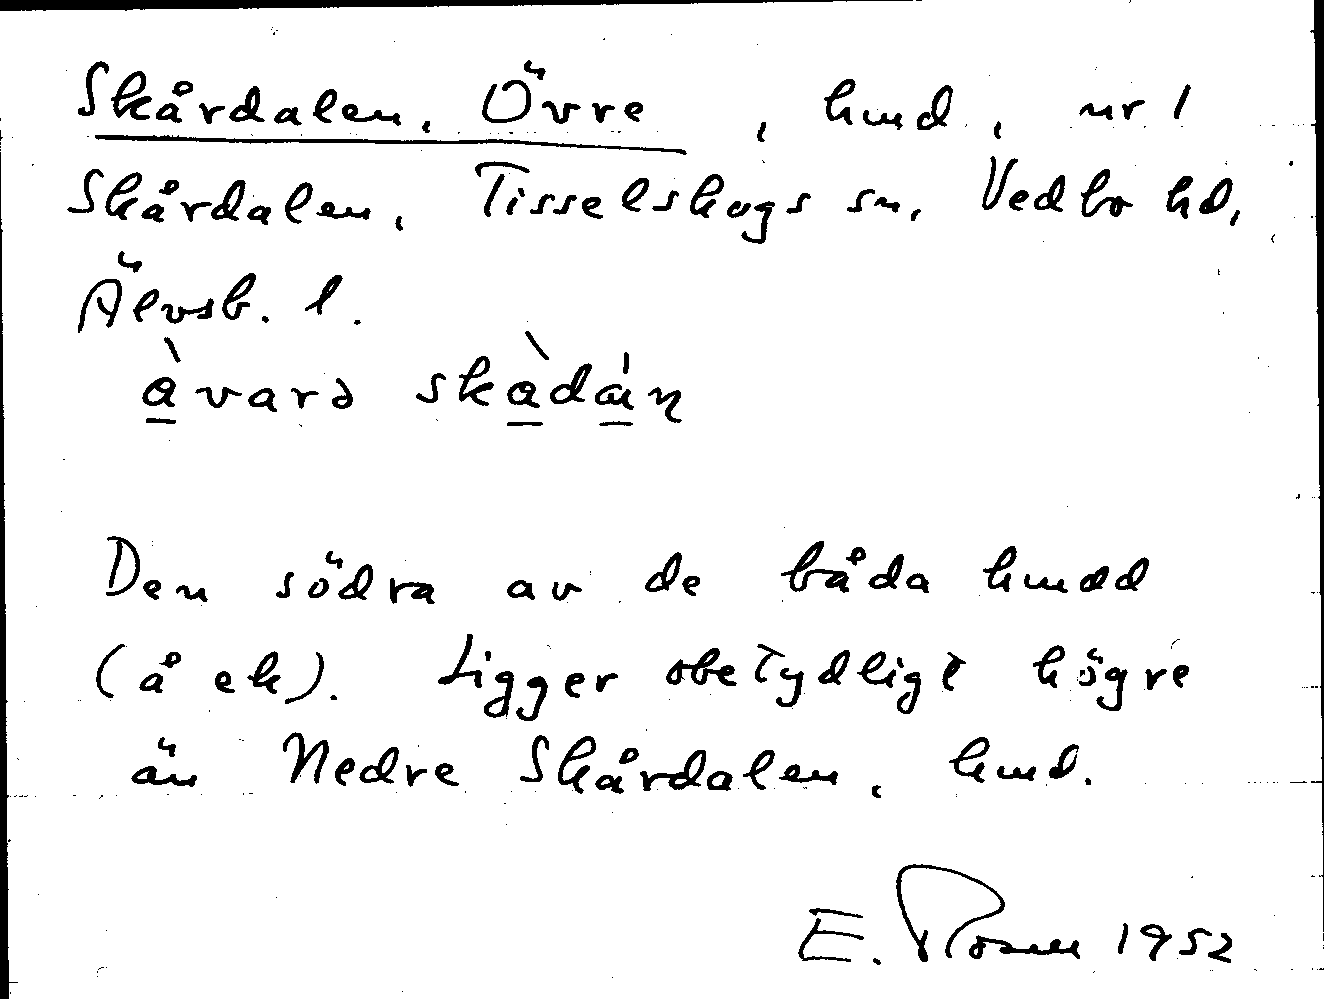 Skårdalen, Övre, hmd, nr 1
Skårdalen, Tisselskogs sn, Vedbo hd,
Älvsb. l.
àvarə skàdán
Den södra av de båda hmdd
(å ek). Ligger obetydligt högre
än Nedre Skårdalen, hmd.
E. Rosell 1952